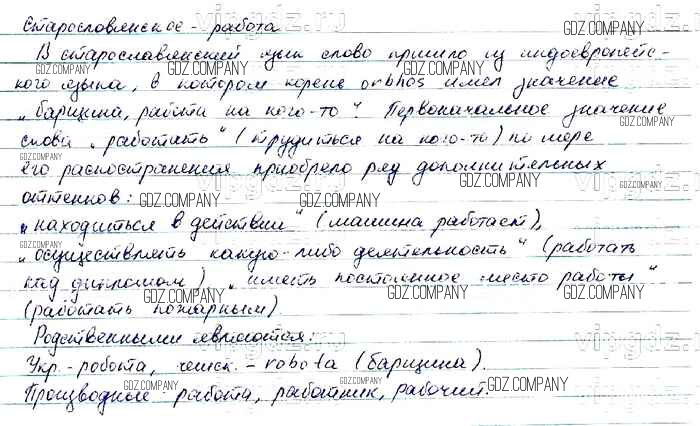 Старославянское - работа
В старославянский язык слово пришло из индоевропейс-
кого языка, в котором корень orbhos имел значение
„барщина, работа на кого-то“. Первоначальное значение
слова „работать“ (трудиться на кого-то) по мере
его распространения приобрело ряд дополнительных
оттенков:
„находиться в действии“ (машина работает),
„осуществлять какую-либо деятельность“ (работать
над дипломом), „иметь постоянное место работы“
(работать пожарным).
Родственными являются:
Укр.- робота, чешск. - robota (барщина).
Производные - работа, работник, рабочий.
vipgdz.ru
GDZ.COMPANY